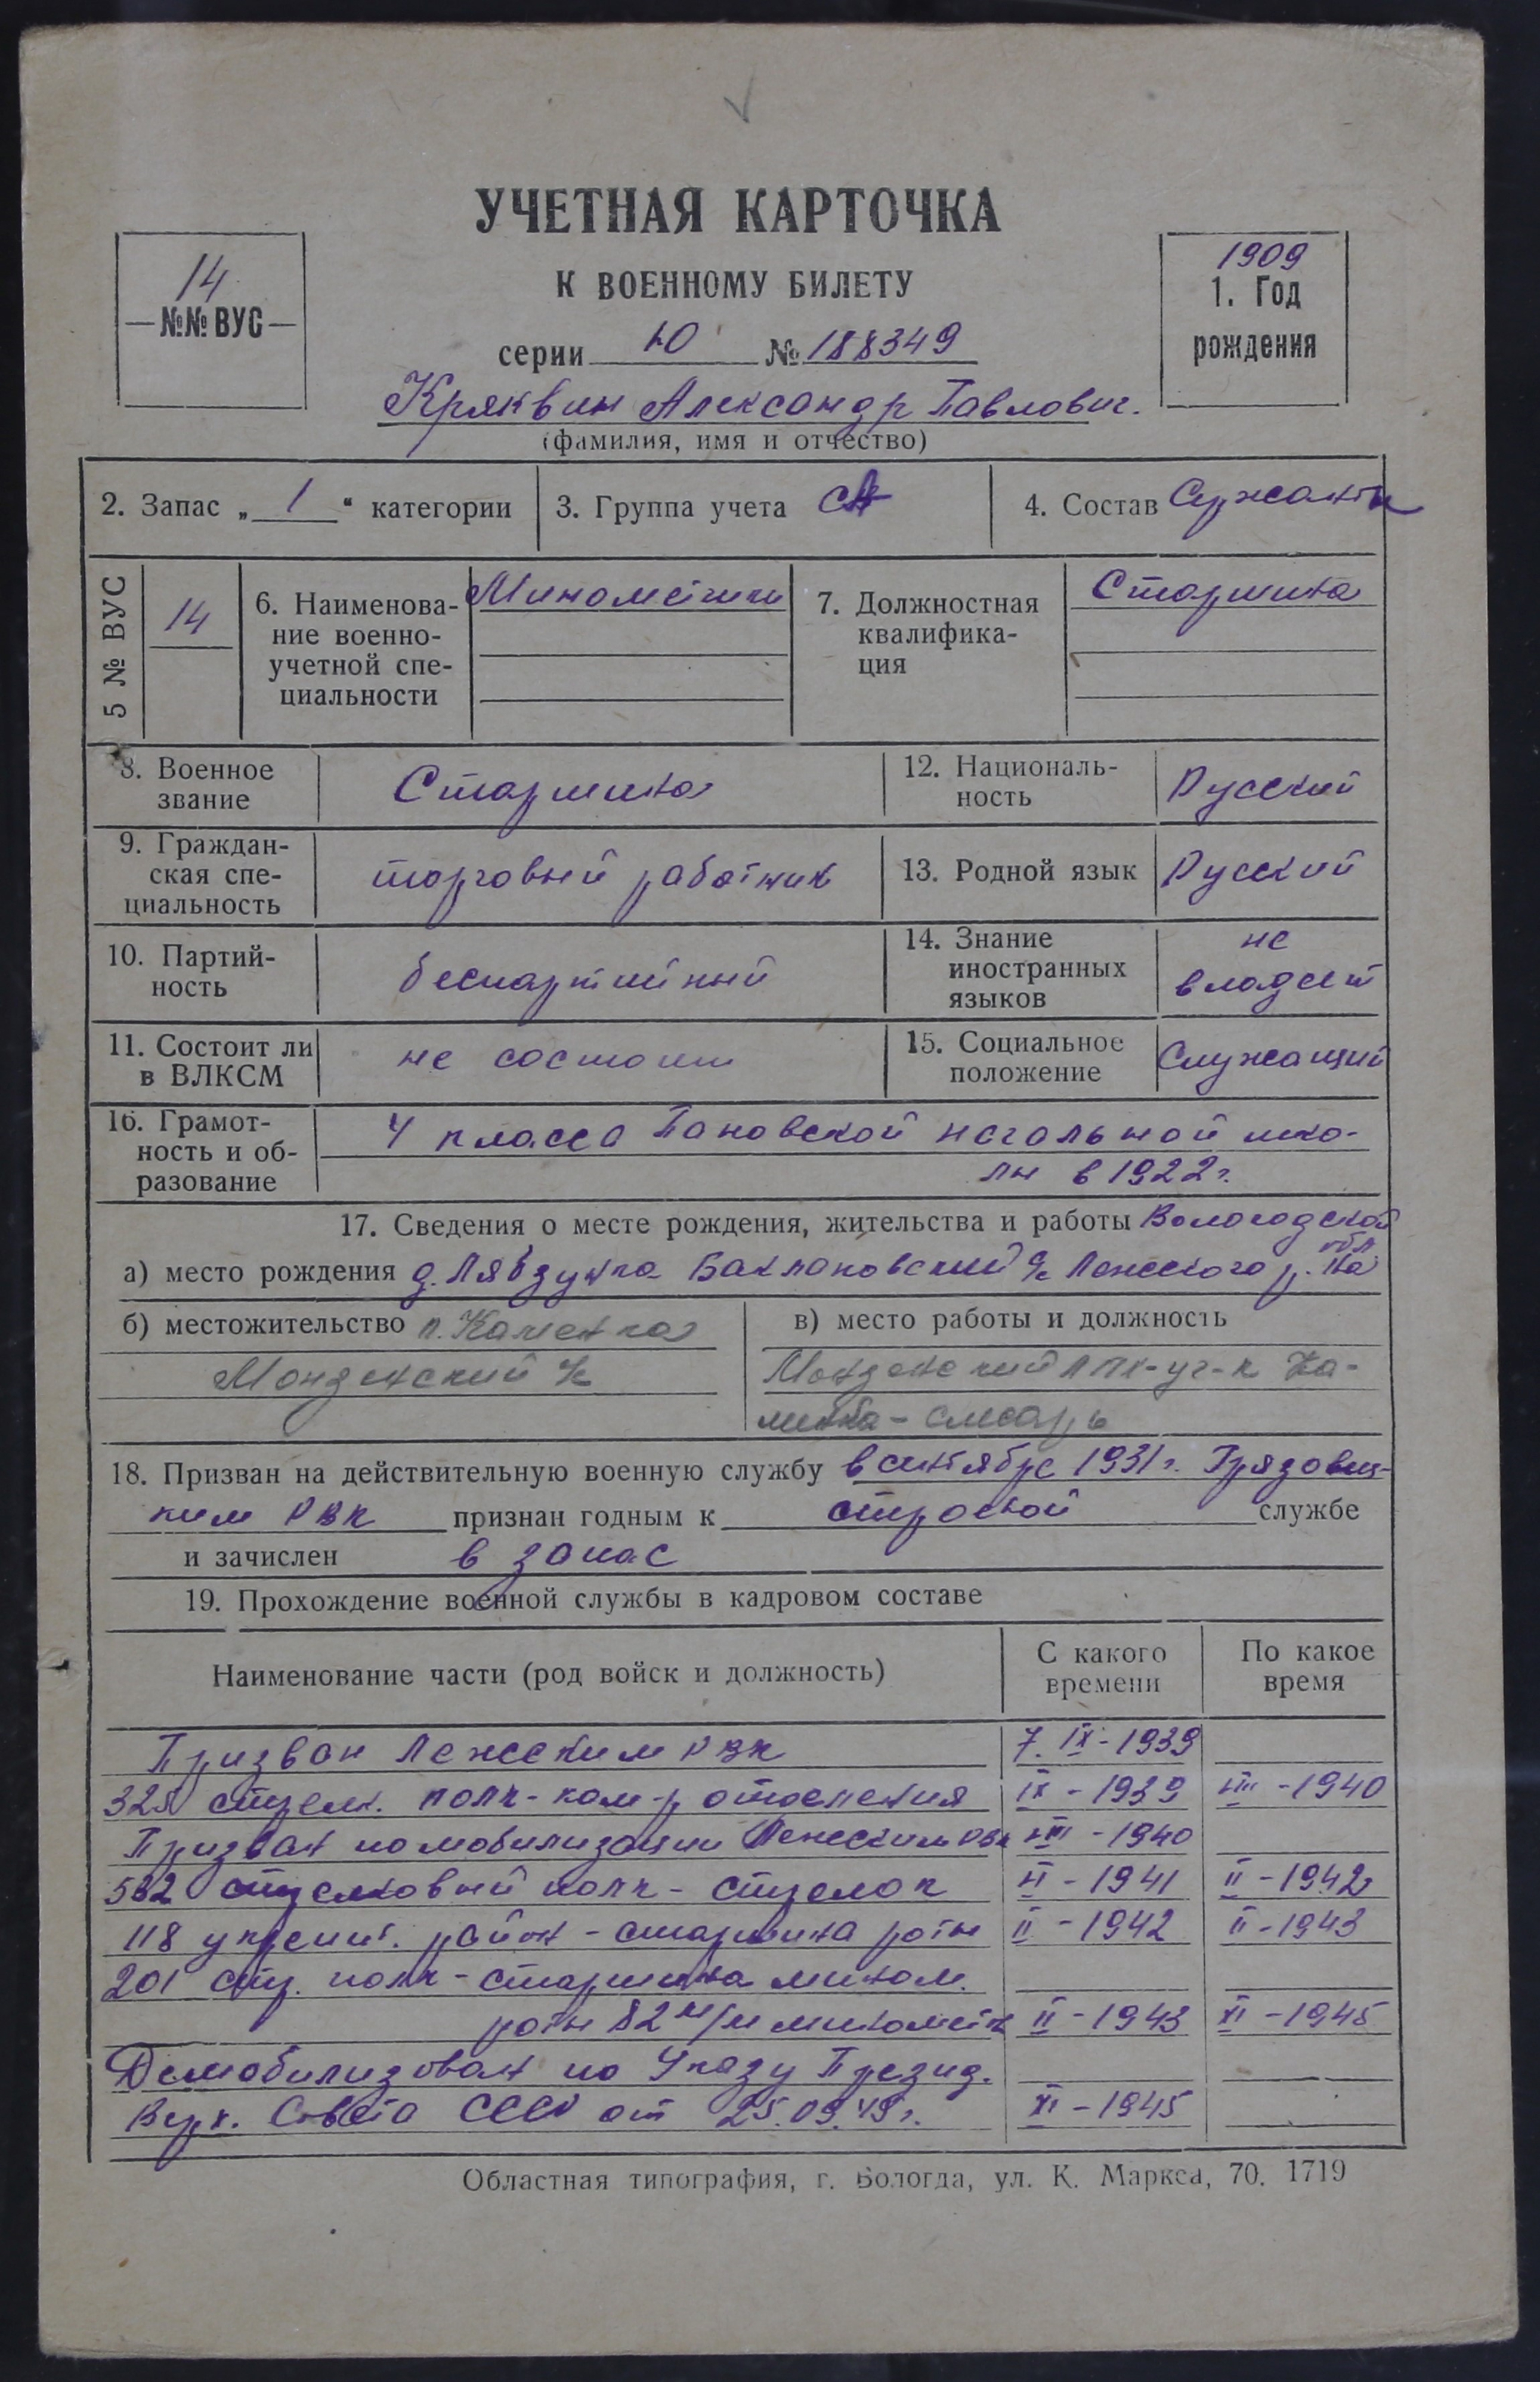 УЧЕТНАЯ КАРТОЧКА
К ВОЕННОМУ БИЛЕТУ
14
№№ ВУС
1909
1. Год
рождения
серии Ю № 188349
Кряквин Александр Павлович.
(фамилия, имя и отчество)
2. Запас „ 1 “ категории
3. Группа учета СА
4. Состав Сержанты
5 № ВУС
14
6. Наименова-
ние военно-
учетной спе-
циальности
Минометчики
7. Должностная
квалифика-
ция
Старшина
8. Военное
звание
Старшина
12. Националь-
ность
Русский
9. Граждан-
ская спе-
циальность
торговый работник
13. Родной язык
Русский
10. Партий-
ность
беспартийный
14. Знание
иностранных
языков
не
владеет
11. Состоит ли
в ВЛКСМ
не состоит
15. Социальное
положение
Служащий
16. Грамот-
ность и об-
разование
4 класса Пановской начальной шко-
лы в 1922 г.
17. Сведения о месте рождения, жительства и работы Вологодской
обл.
а) место рождения д. Лявзунка Баклановский с/с Лежского р.
б) местожительство п. Каменка
Монденский с/с
в) место работы и должность
ЛПХ-уч-к Ка-
менка - слесарь
18. Призван на действительную военную службу в сентябре 1931 г. Грязовец-
ким РВК признан годным к строевой службе
и зачислен в запас
19. Прохождение военной службы в кадровом составе
Наименование части (род войск и должность)
С какого
времени
По какое
время
Призван Лежским РВК 7. IX - 1939
стрелк. полк - ком-р отделения IX - 1939 - 1940
Призван по мобилизации Лежским РВК - 1940
532 стрелковый полк - стрелок - 1941 II - 1942
118 укрепит. район - старшина роты II - 1942 II - 1943
201 стр. полк - старшина мином.
роты 82 м/м минометов II - 1943 XI - 1945
Демобилизован по Указу Презид.
Верх. Совета СССР от 25.09.45 г. XI - 1945
Областная типография, г. Вологда, ул. К. Маркса, 70. 1719